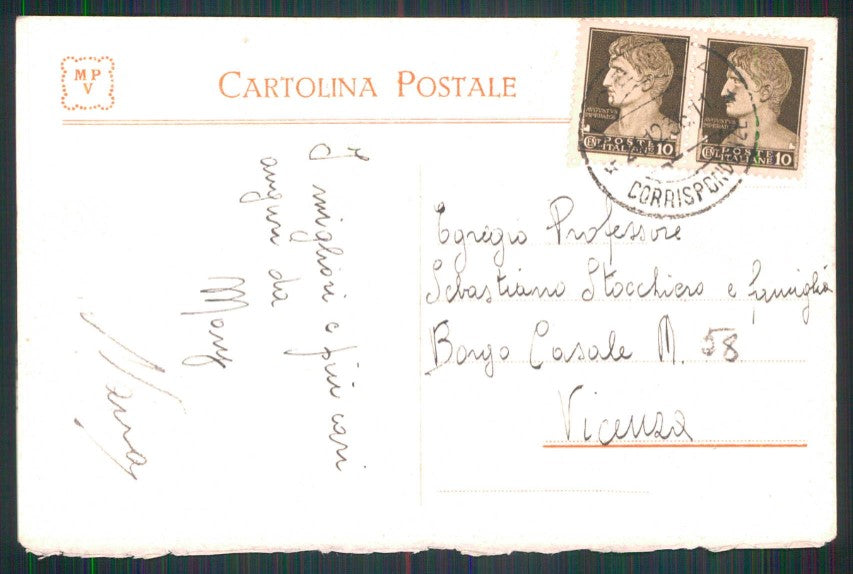 MP
V
CARTOLINA POSTALE
AVGVSTVS
IMPERATOR
POSTE
CENT ITALIANE 10
AVGVSTVS
IMPERATOR
POSTE
CENT ITALIANE 10
CORRISPOND
I migliori e più cari
auguri da
Egregio Professore
Sebastiano Stocchiero e famiglia
Borgo Casale N. 58
Vicenza